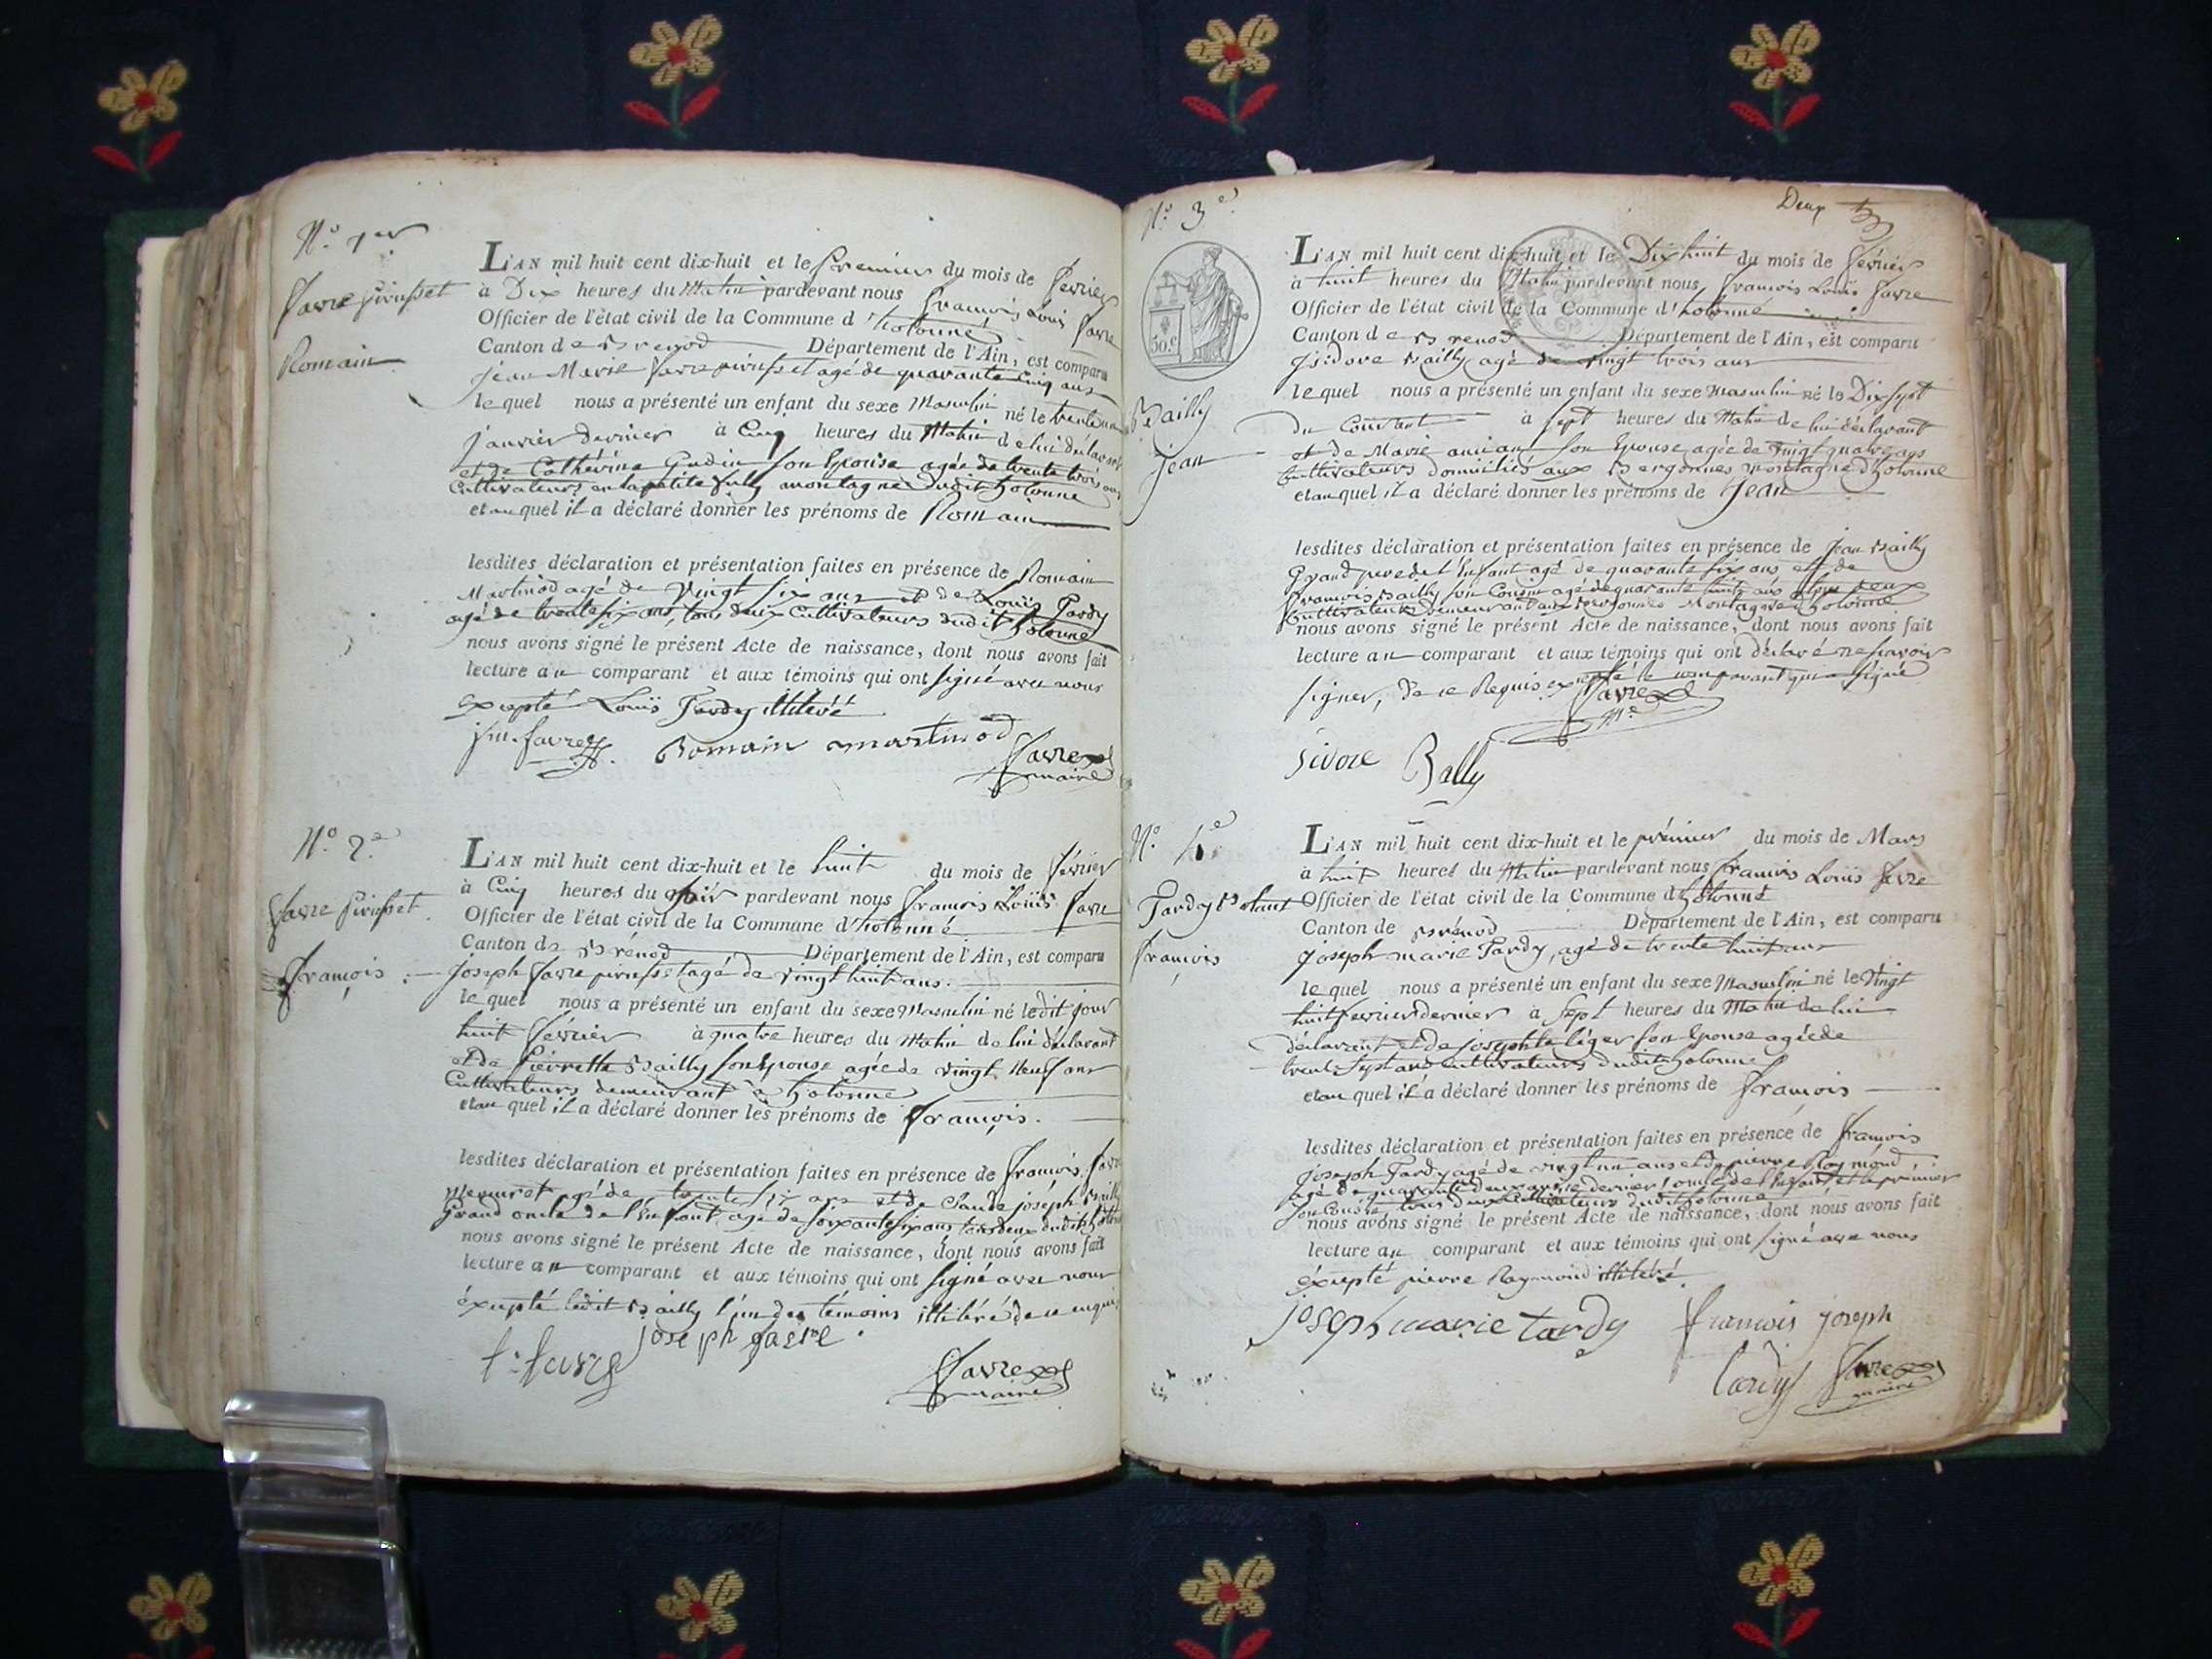 N.o 1.er
Favre pirufset
Romain
L'AN mil huit cent dix-huit et le premier du mois de fevrier
à Dix heures du Matin pardevant nous François Louis Favre
Officier de l'état civil de la Commune d'hotonne
Canton de Brenod Département de l'Ain, est comparu
jean Marie Favre pirufset agé de quarante Cinq ans
lequel nous a présenté un enfant du sexe Masculin né le trente un
janvier dernier à Cinq heures du Matin de lui déclarant
et de Cathérine Gudin son Epouse agée de trente trois ans
Cultivateurs en la petite montagne dudit hotonne
et au quel il a déclaré donner les prénoms de Romain
lesdites déclaration et présentation faites en présence de Romain
Martinod agé de Vingt six ans et de Louis Tardy
agé de trente six ans, tous deux Cultivateurs dudit hotonne
nous avons signé le présent Acte de naissance, dont nous avons fait
lecture au comparant et aux témoins qui ont signé avec nous
excepté Louis Tardy illiteré
j m. favre Romain martinod Favre
maire
N.o 2.e
Favre Pirufset
François
L'AN mil huit cent dix-huit et le huit du mois de février
à Cinq heures du soir pardevant nous François Loüis Favre
Officier de l'état civil de la Commune d'hotonne
Canton de Brénod Département de l'Ain, est comparu
joseph Favre pirufset agé de vingt huit ans.
lequel nous a présenté un enfant du sexe Masculin né ledit jour
huit février à quatre heures du Matin de lui déclarant
et de Pierrette Bailly son Epouse agée de vingt neuf ans
Cultivateurs demeurant à hotonne
et au quel il a déclaré donner les prénoms de François.
lesdites déclaration et présentation faites en présence de François Favre
agé de trente six ans et de Claude joseph Bailly
Grand oncle de l'Enfant agé de soixante six ans tous deux dudit hotonne
nous avons signé le présent Acte de naissance, dont nous avons fait
lecture au comparant et aux témoins qui ont signé avec nous
éxcepté ledit Bailly l'un des témoins illitéré de ce enquis
f. favre joseph favre
Favre
maire
Deux
N.o 3.e
50.c
Bailly
jean
L'AN mil huit cent dix-huit et le Dix huit du mois de février
à huit heures du Matin pardevant nous François Louis Favre
Officier de l'état civil de la Commune d'hotonne
Canton de Brenod Département de l'Ain, est comparu
Isidore Bailly agé de vingt trois ans
lequel nous a présenté un enfant du sexe Masculin né le Dix sept
du Courant à sept heures du Matin de lui déclarant
et de Marie ancian son Epouse agée de vingt quatre ans
Cultivateurs domiciliés aux Bergonnes Montagne d'hotonne
et au quel il a déclaré donner les prénoms de Jean
lesdites déclaration et présentation faites en présence de jean Bailly
Grand pere de l'Enfant agé de quarante six ans et de
François Bailly son Cousin agé de quarante huit ans
Cultivateurs demeurant aux Bergonnes Montagne d'hotonne
nous avons signé le présent Acte de naissance, dont nous avons fait
lecture au comparant et aux témoins qui ont déclaré ne savoir
signer, de ce Requis excepté le comparant qui a signé
Favre
M.e
sidore Bally
N.o 4.e
Tardy
François
L'AN mil huit cent dix-huit et le prémier du mois de Mars
à huit heures du Matin pardevant nous François Louis Favre
Officier de l'état civil de la Commune d'hotonne
Canton de Brénod Département de l'Ain, est comparu
joseph marie Tardy, agé de trente huit ans
lequel nous a présenté un enfant du sexe Masculin né le vingt
huit fevrier dernier à Sept heures du Matin de lui
déclarant et de josephte léger son Epouse agée de
trente sept ans cultivateurs dudit hotonne
et au quel il a déclaré donner les prénoms de François
lesdites déclaration et présentation faites en présence de François
joseph Tardy agé de vingt un ans et de pierre Raymond
agé de quarante deux ans, ce dernier oncle de l'Enfant, et le prémier
son Cousin tous deux Cultivateurs dudit hotonne
nous avons signé le présent Acte de naissance, dont nous avons fait
lecture au comparant et aux témoins qui ont signé avec nous
éxcepté pierre Raymond illitéré
joseph marie tardy francois joseph
tardy Favre
maire